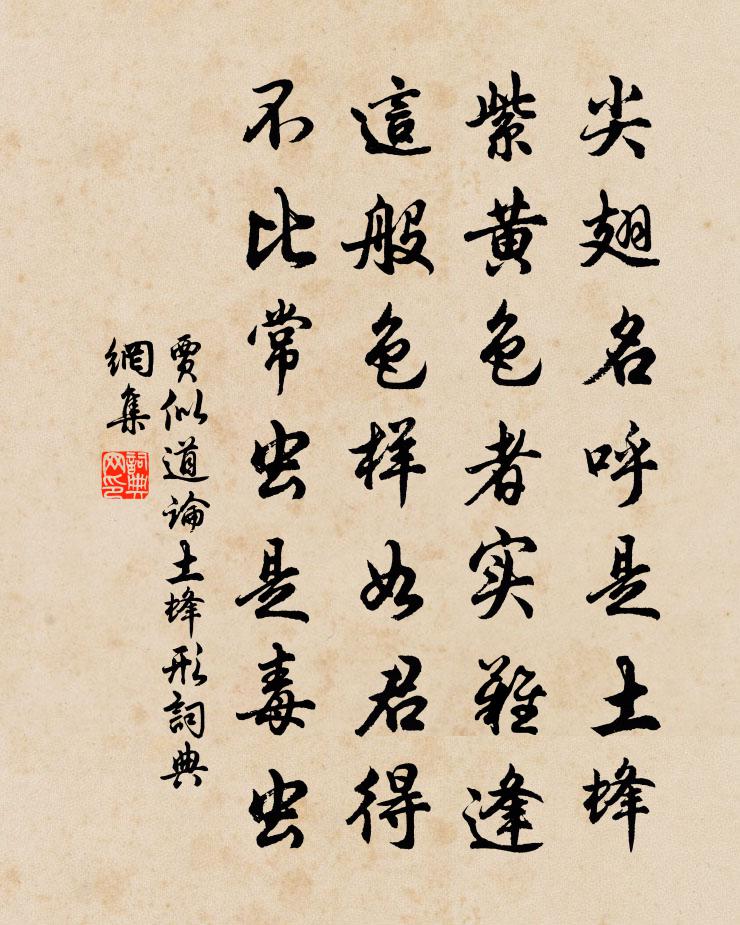 尖翅名呼是土蜂
紫黄色者实難逢
這般色样如君得
不比常虫是毒虫
賈似道論土蜂形詞典
網集
詞典
网印